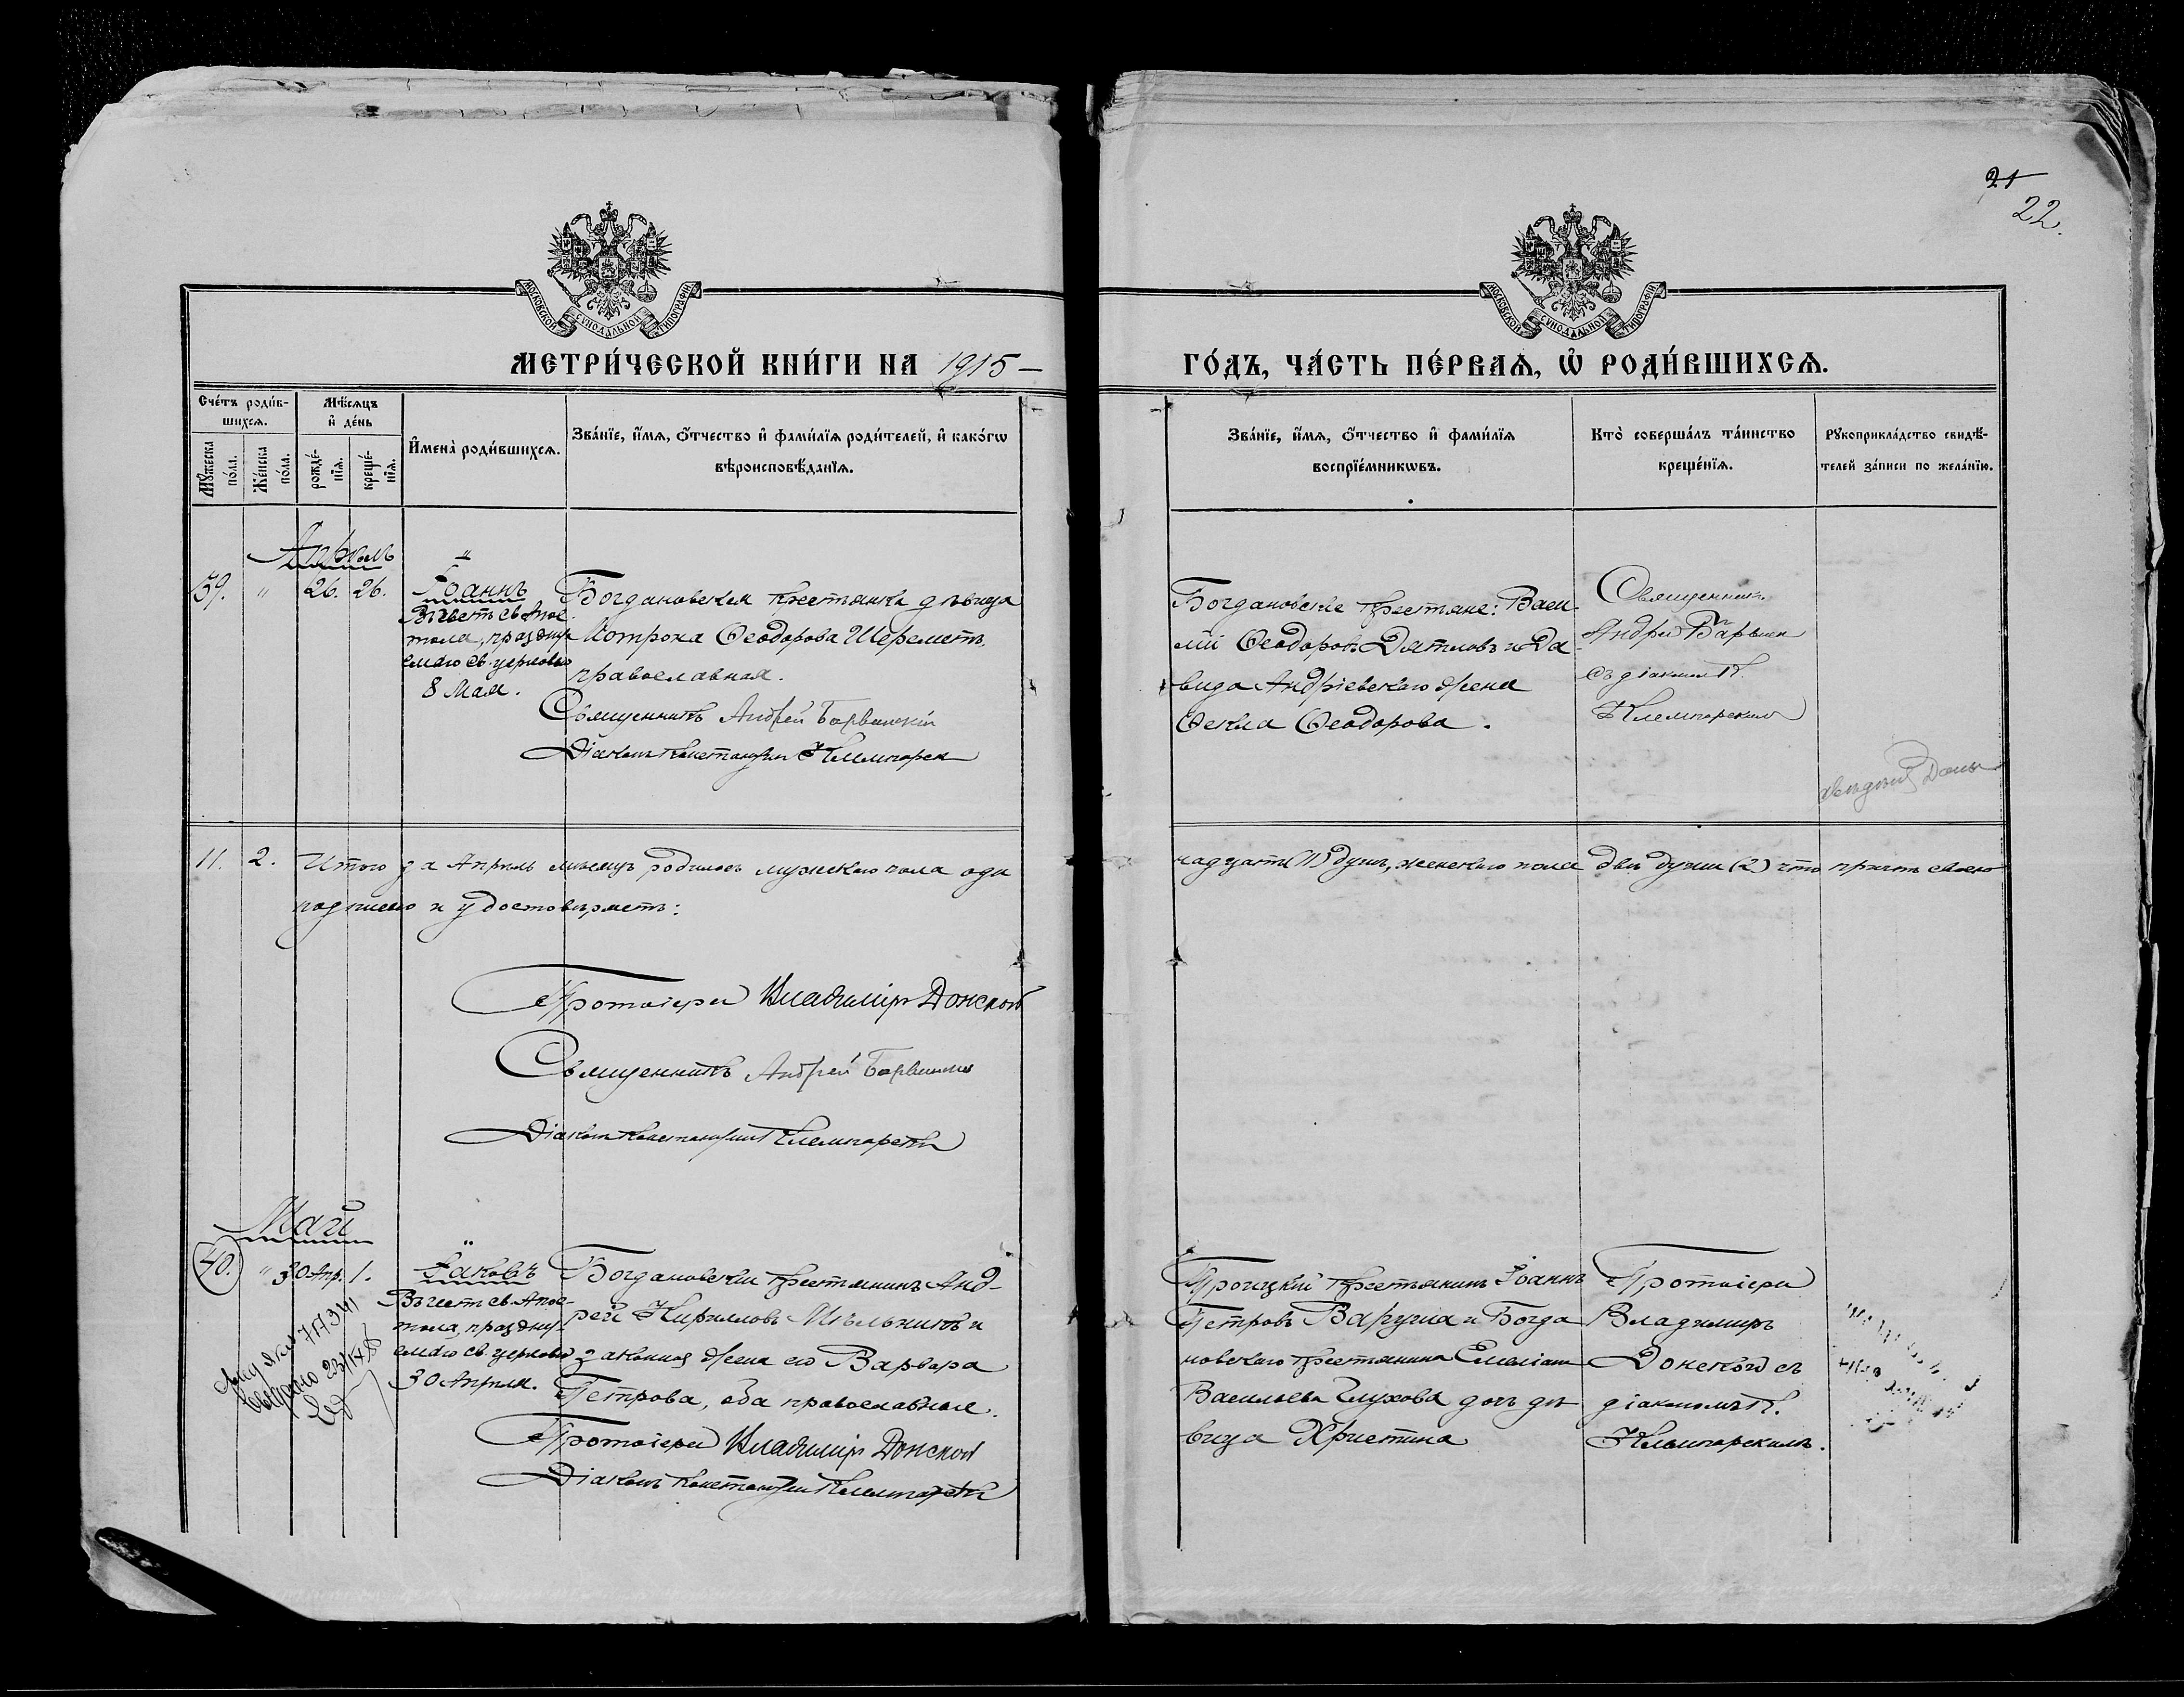 21
22.
МОСКОВСКОЙ СѴНОДАЛЬНОЙ ТИПОГРАФІИ
МОСКОВСКОЙ СѴНОДАЛЬНОЙ ТИПОГРАФІИ
МЕТРИ́ЧЕСКОЙ КНИ́ГИ НА 1915 —
ГО́ДЪ, ЧА́СТЬ ПЕ́РВАѦ, Ѡ҆ РОДИ́ВШИХСѦ.
Сче́тъ роди́в-
шихсѧ.
Мꙋ́жеска по́ла.
Же́нска по́ла.
Мѣ́сѧцъ
и҆ де́нь
рожде́-
нїѧ.
креще́-
нїѧ.
И҆мена̀ роди́вшихсѧ.
Зва́нїе, и҆́мѧ, ѻ҆́тчество и҆ фами́лїѧ роди́телей, и҆ како́гѡ
вѣроисповѣ́данїѧ.
Зва́нїе, и҆́мѧ, ѻ҆́тчество и҆ фами́лїѧ
воспрїе́мникѡвъ.
Кто̀ соверша́лъ та́инство
креще́нїѧ.
Рꙋкоприкла́дство свидѣ́-
телей за́писи по жела́нїю.
Апрѣль
39. " 26. 26. Іоаннъ
Въ честь св. Апос-
тола, праздну-
емаго св. церковью
8 Мая.
Богдановская крестьянка дѣвица
Мотрона Ѳеодорова Шереметъ,
православная.
Священникъ Андрей Барвинскій
Діаконъ Константинъ Клемпарскій
Богдановскіе крестьяне: Васи-
лій Ѳеодоровъ Дятловъ и Да-
вида Андріевскаго жена
Ѳекла Ѳеодорова.
Священникъ
Андрей Барвин
съ діакономъ К.
Клемпарскимъ
11. 2. Итого за Апрѣль мѣсяцъ родилось мужскаго пола оди
надцать (11) душъ, женскаго пола двѣ души (2) что причтъ своею
подписью и удостовѣряетъ:
Протоіерей Владиміръ Донской
Священникъ Андрей Барвинскій
Діаконъ Константинъ Клемпарскій
Май
40. " 30 Апр. 1. Іаковъ
Въ честь св. Апос-
тола, праздну-
емаго св. церковью
30 Апрѣля.
Богдановскій крестьянинъ Анд-
рей Кирилловъ Мѣльникъ и
законная жена его Варвара
Петрова, оба православные.
Протоіерей Владиміръ Донской
Діаконъ Константинъ Клемпарскій
Троицкій крестьянинъ Іоаннъ
Петровъ Варуча и Богда
новскаго крестьянина Емеліана
Васильева Глухова дочь дѣ
вица Христина
Протоіерей
Владимиръ
Донской съ
діакономъ К.
Клемпарскимъ.